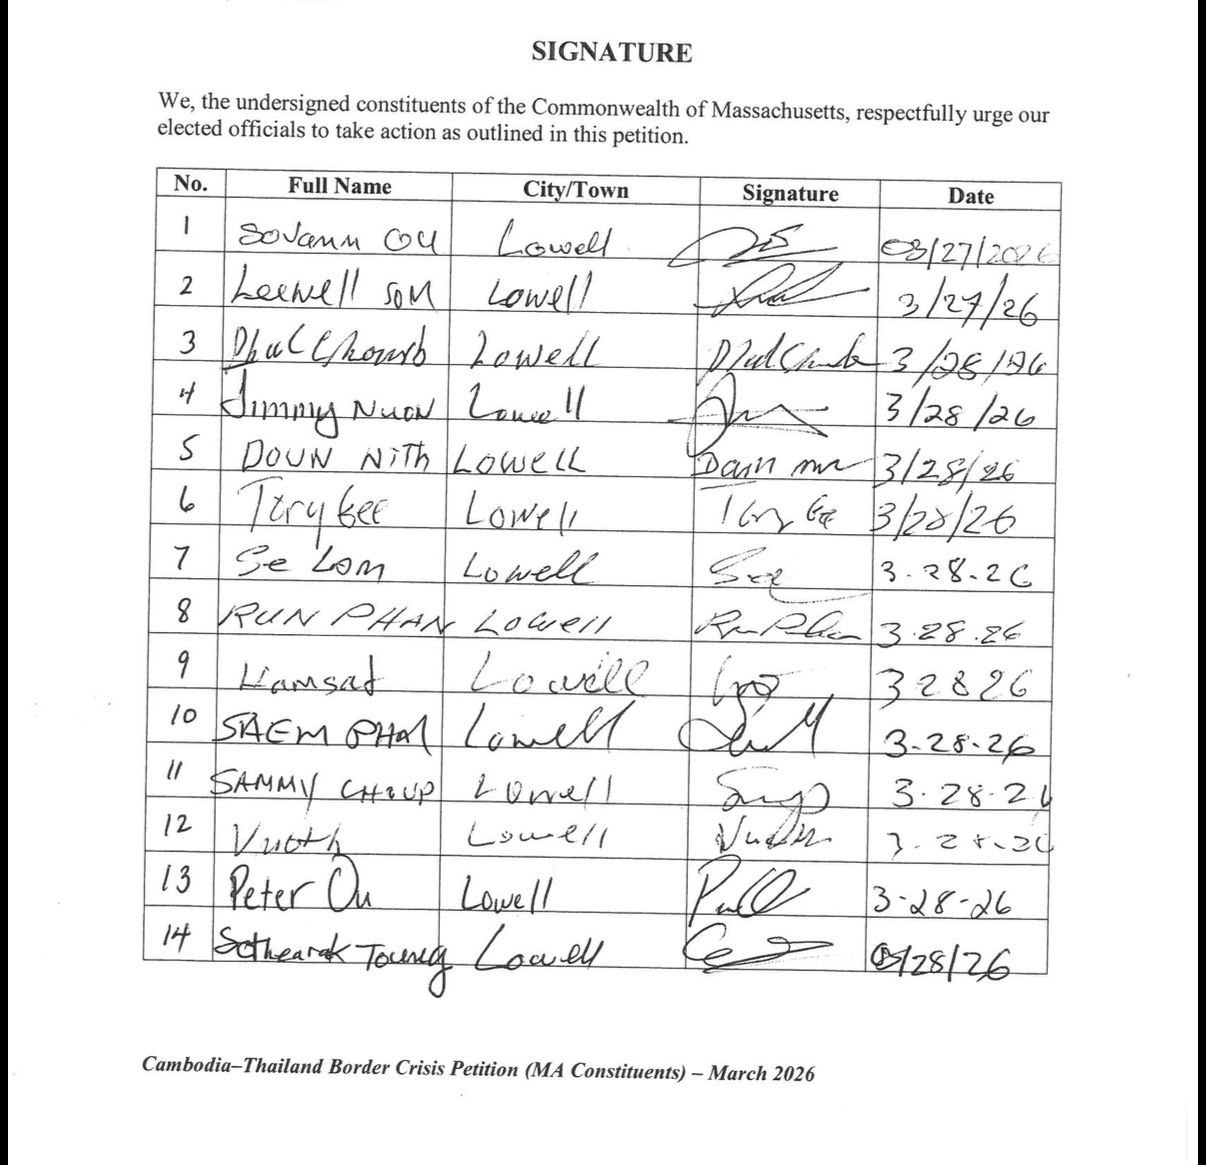 SIGNATURE
We, the undersigned constituents of the Commonwealth of Massachusetts, respectfully urge our
elected officials to take action as outlined in this petition.
No. Full Name City/Town Signature Date
1 Sovann Ou Lowell 03/27/2026
2 Leewell Som Lowell 3/27/26
3 Lowell 3/28/26
4 Jimmy Nuon Lowell 3/28/26
5 DOUN NITH LOWELL 3/28/26
6 Lowell 3/28/26
7 Se Lom Lowell 3.28.26
8 RUN PHAN Lowell 3.28.26
9 Lowell 32826
10 SAEM Lowell 3-28-26
11 SAMMY Lowell 3.28.26
12 Vuoth Lowell 3.28.26
13 Peter Ou Lowell 3-28-26
14 Sothearak Toung Lowell 03/28/26
Cambodia–Thailand Border Crisis Petition (MA Constituents) – March 2026